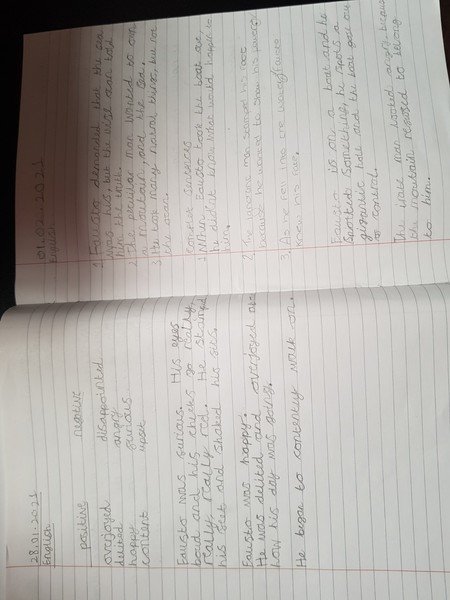 28.01.2021
English
positive negitive
overjoyed disappointed
delited angry
happy furious
content upset
Fausto was furious. His eyes
and his cheeks go really,
really really red. He stamped
his feet and shaked his fist.
Fausto was happy.
He was delited and overjoyed
how his day was going.
He began to contently walk on.
01.02.2021
English
1 Fausto demanded that the
was his, but the wise man told
him the truth.
2 The peculiar man wanted to own
a mountain, and the sea.
3 He had many material things, but not
the ocean.
1 When Fausto took the boat
he didn't know what would happen to
him.
2 The ignorant man stamped his foot
because he wanted to show his power
3 As he fell into
knew his fate.
Fausto is on a boat and he
spotted something, he spots a
gigantic hole and the boat got out
of control.
The man looked angry because
the mountain refused to belong
to him.